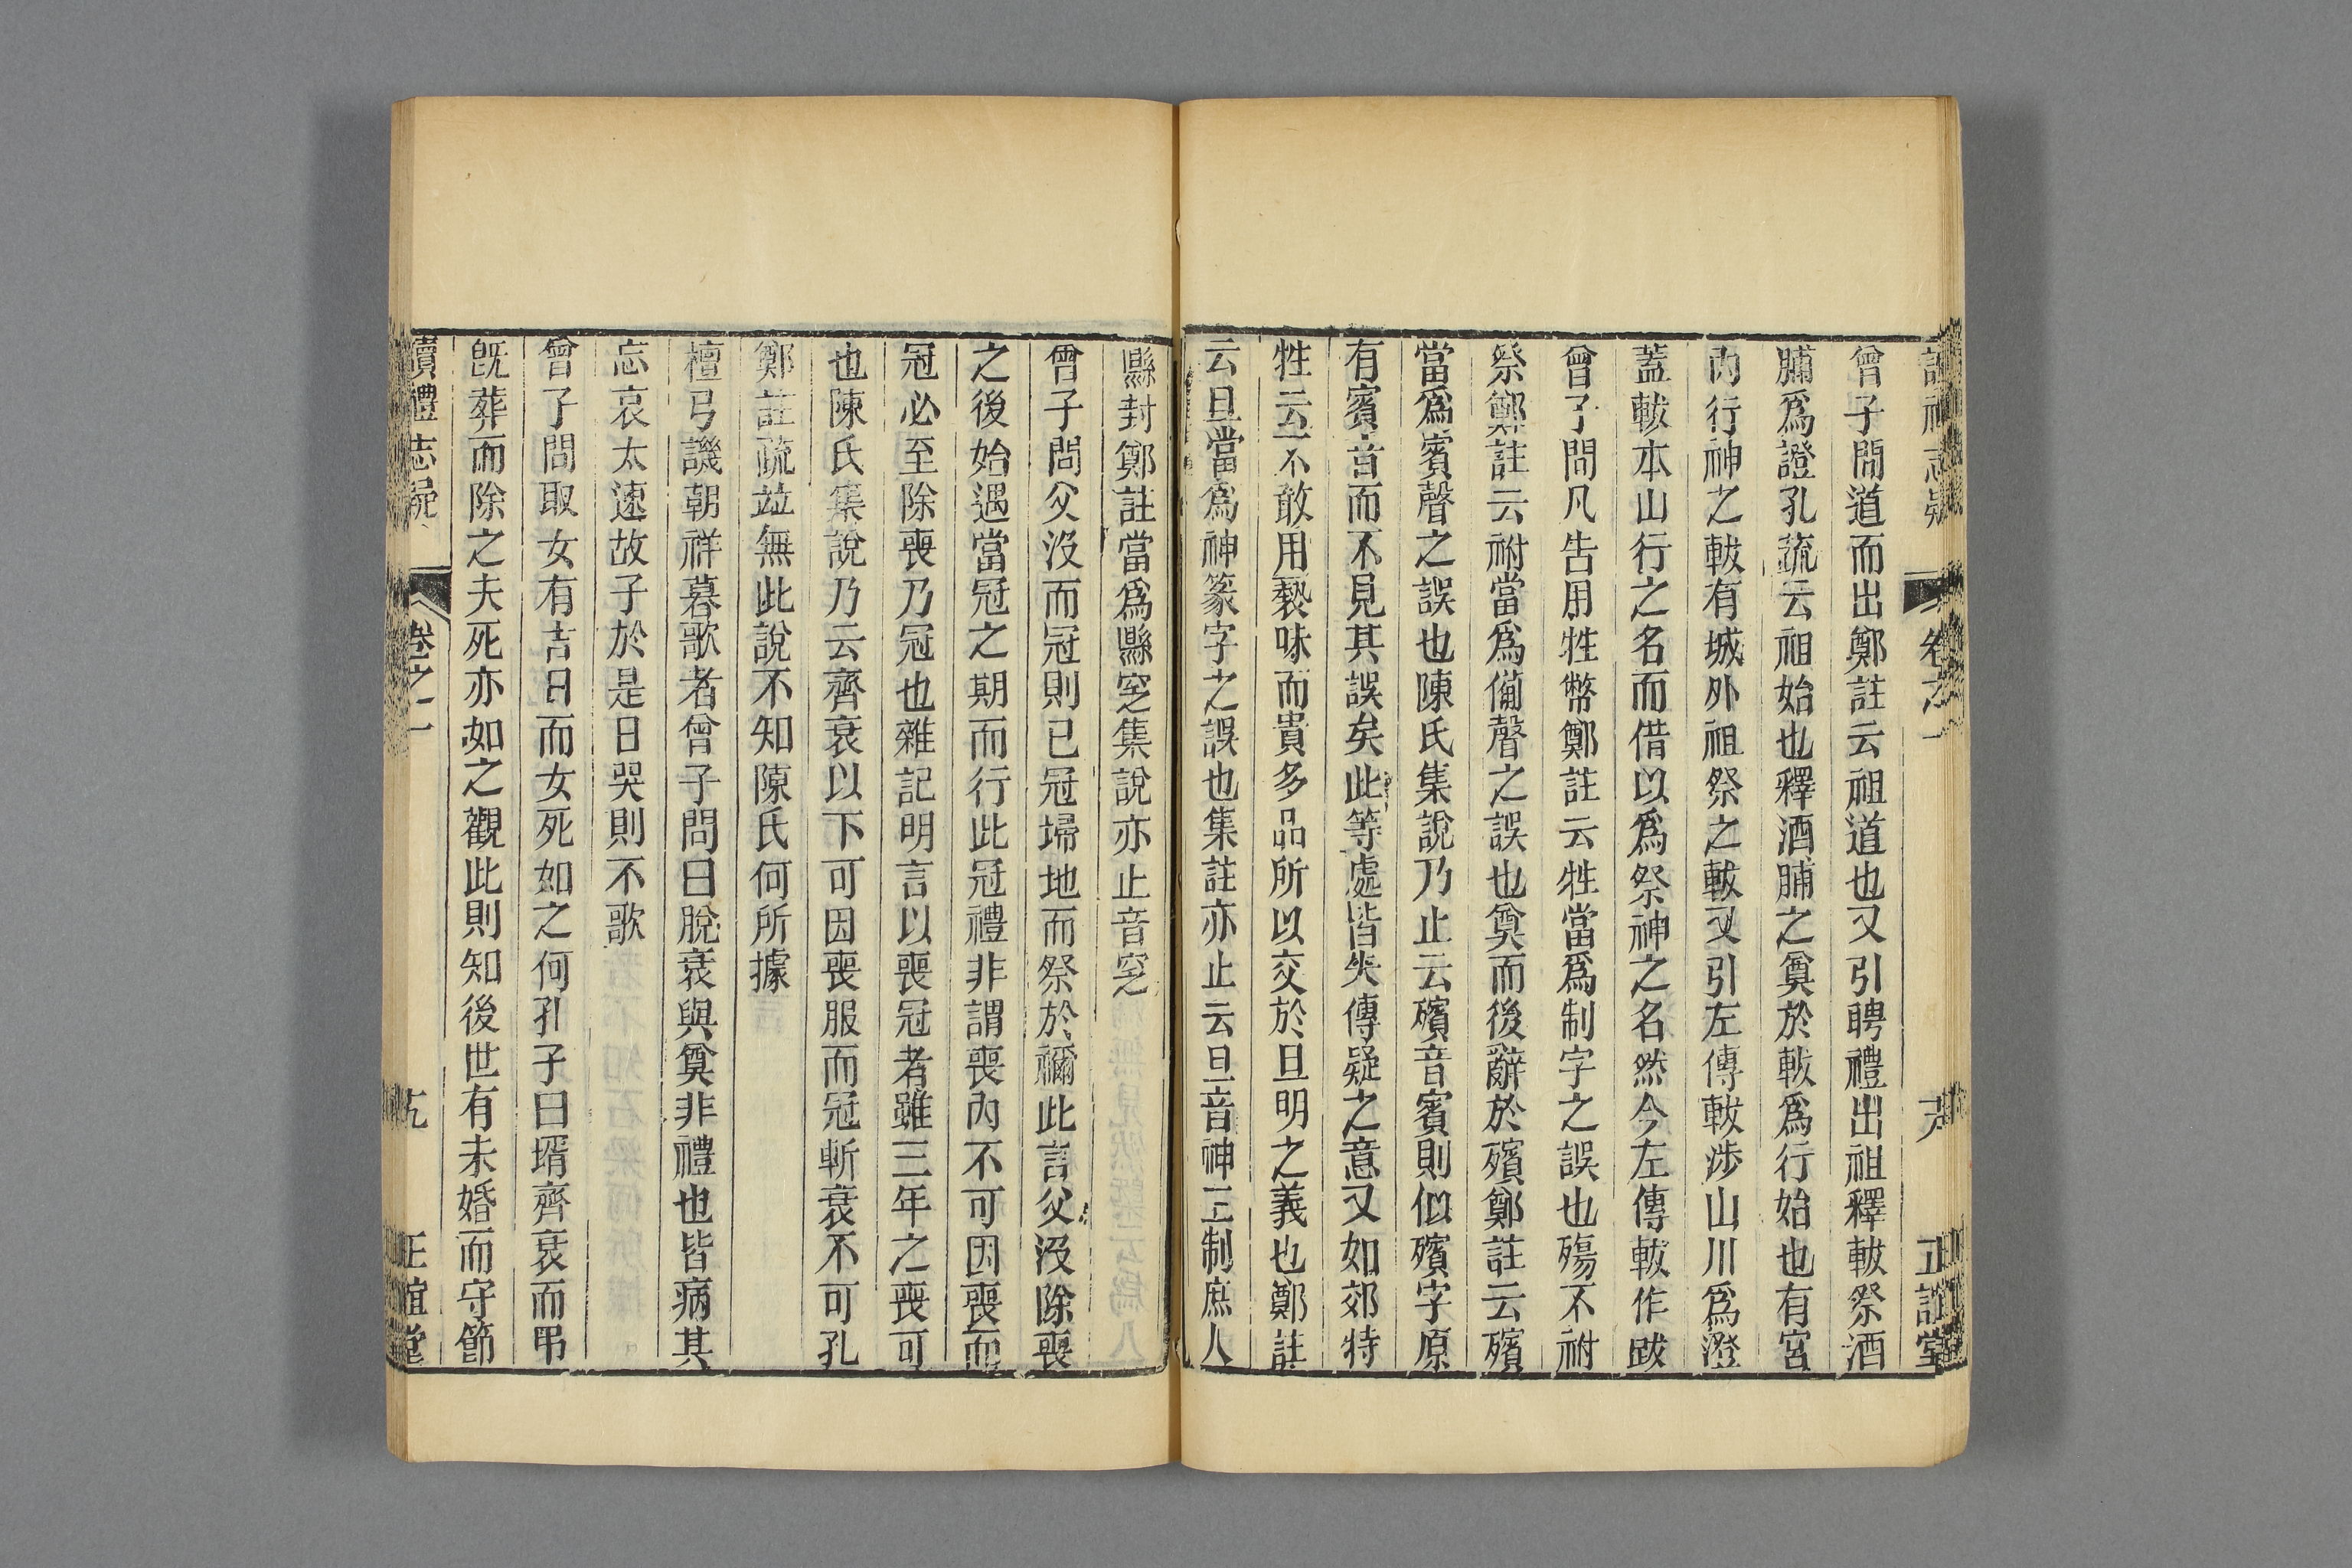 讀禮志疑 卷之一 正誼堂
曾子問道而出鄭註云祖道也又引聘禮出祖釋軷祭酒
脯爲證孔疏云祖始也釋酒脯之奠於軷爲行始也有宮
內行神之軷有城外祖祭之軷又引左傳軷涉山川爲證
蓋軷本山行之名而借以爲祭神之名然今左傳軷作跋
曾子問凡告用牲幣鄭註云牲當爲制字之誤也殤不祔
祭鄭註云祔當爲備聲之誤也奠而後辭於殯鄭註云殯
當爲賓聲之誤也陳氏集說乃止云殯音賓則似殯字原
有賓音而不見其誤矣此等處皆失傳疑之意又如郊特
牲云不敢用褻味而貴多品所以交於旦明之義也鄭註
云旦當爲神篆字之誤也集註亦止云旦音神王制庶人
縣封鄭註當爲縣窆集說亦止音窆
曾子問父沒而冠則已冠埽地而祭於禰此言父沒除喪
之後始遇當冠之期而行此冠禮非謂喪內不可因喪而
冠必至除喪乃冠也雜記明言以喪冠者雖三年之喪可
也陳氏集說乃云齊衰以下可因喪服而冠斬衰不可孔
鄭註疏竝無此說不知陳氏何所據
檀弓譏朝祥暮歌者曾子問曰脫衰與奠非禮也皆病其
忘哀太速故子於是日哭則不歌
曾子問取女有吉日而女死如之何孔子曰壻齊衰而弔
旣葬而除之夫死亦如之觀此則知後世有未婚而守節
讀禮志疑 卷之一 正誼堂